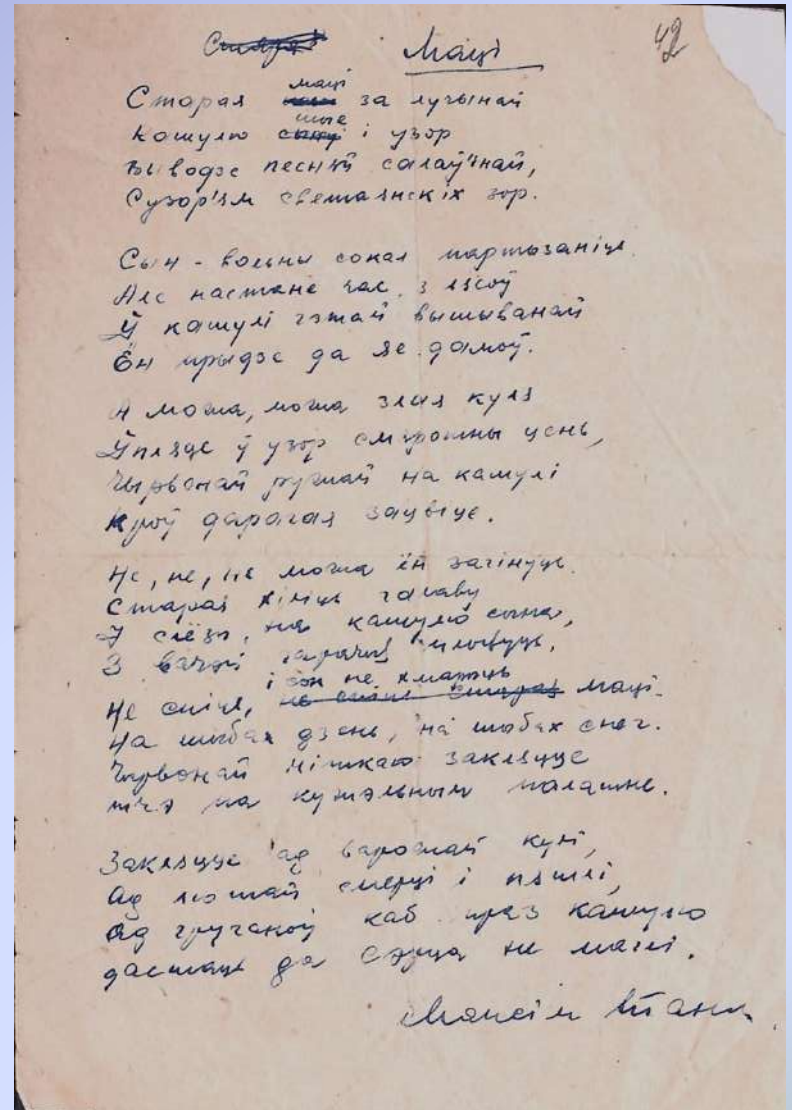 Маці
42
Старая маці за лучынай
Кашулю шые і узор
Выводзе песняй салаўінай,
Сузор'ям светаянскіх зор.
Сын - вольны сокал партызаніць.
Але настане час, з лясоў
Ў кашулі гэтай вышыванай
Ён прыдзе да яе дамоў.
А можа, можа злая куля
Ўпляце ў узор смяротны цень,
Чырвонай ружай на кашулі
Кроў дарагая зацвіце.
Не, не, не можа ён загінуць.
Старая хіліць галаву
І слёзы, на кашулю сына,
З вачэй гарачыя плывуць.
Не спіць, і зон не хмараць маці.
На шыбах дзень, на шыбах снег.
Чырвонай ніткаю закляцце
на кужэльным палатне.
Закляцце ад варожай кулі,
Ад лютай смерці і пятлі,
Ад груганоў каб праз кашулю
дастаць да сэрца не маглі.
Максім Танк.